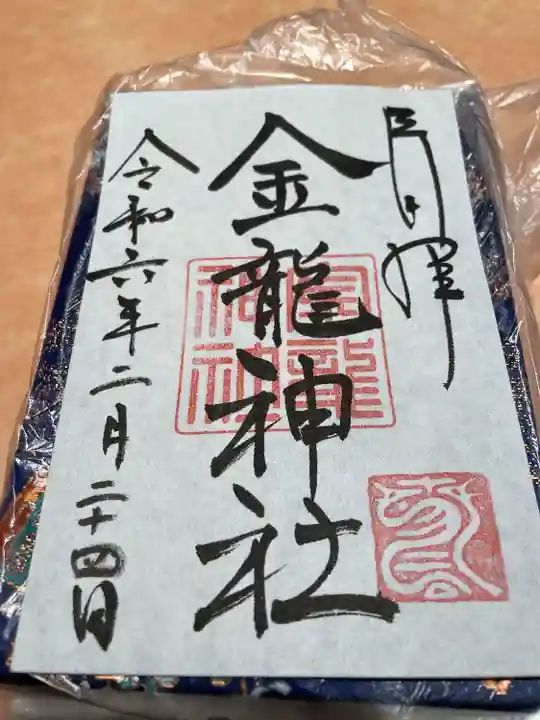 奉拝
金龍神社
令和六年二月二十四日
金龍
神社